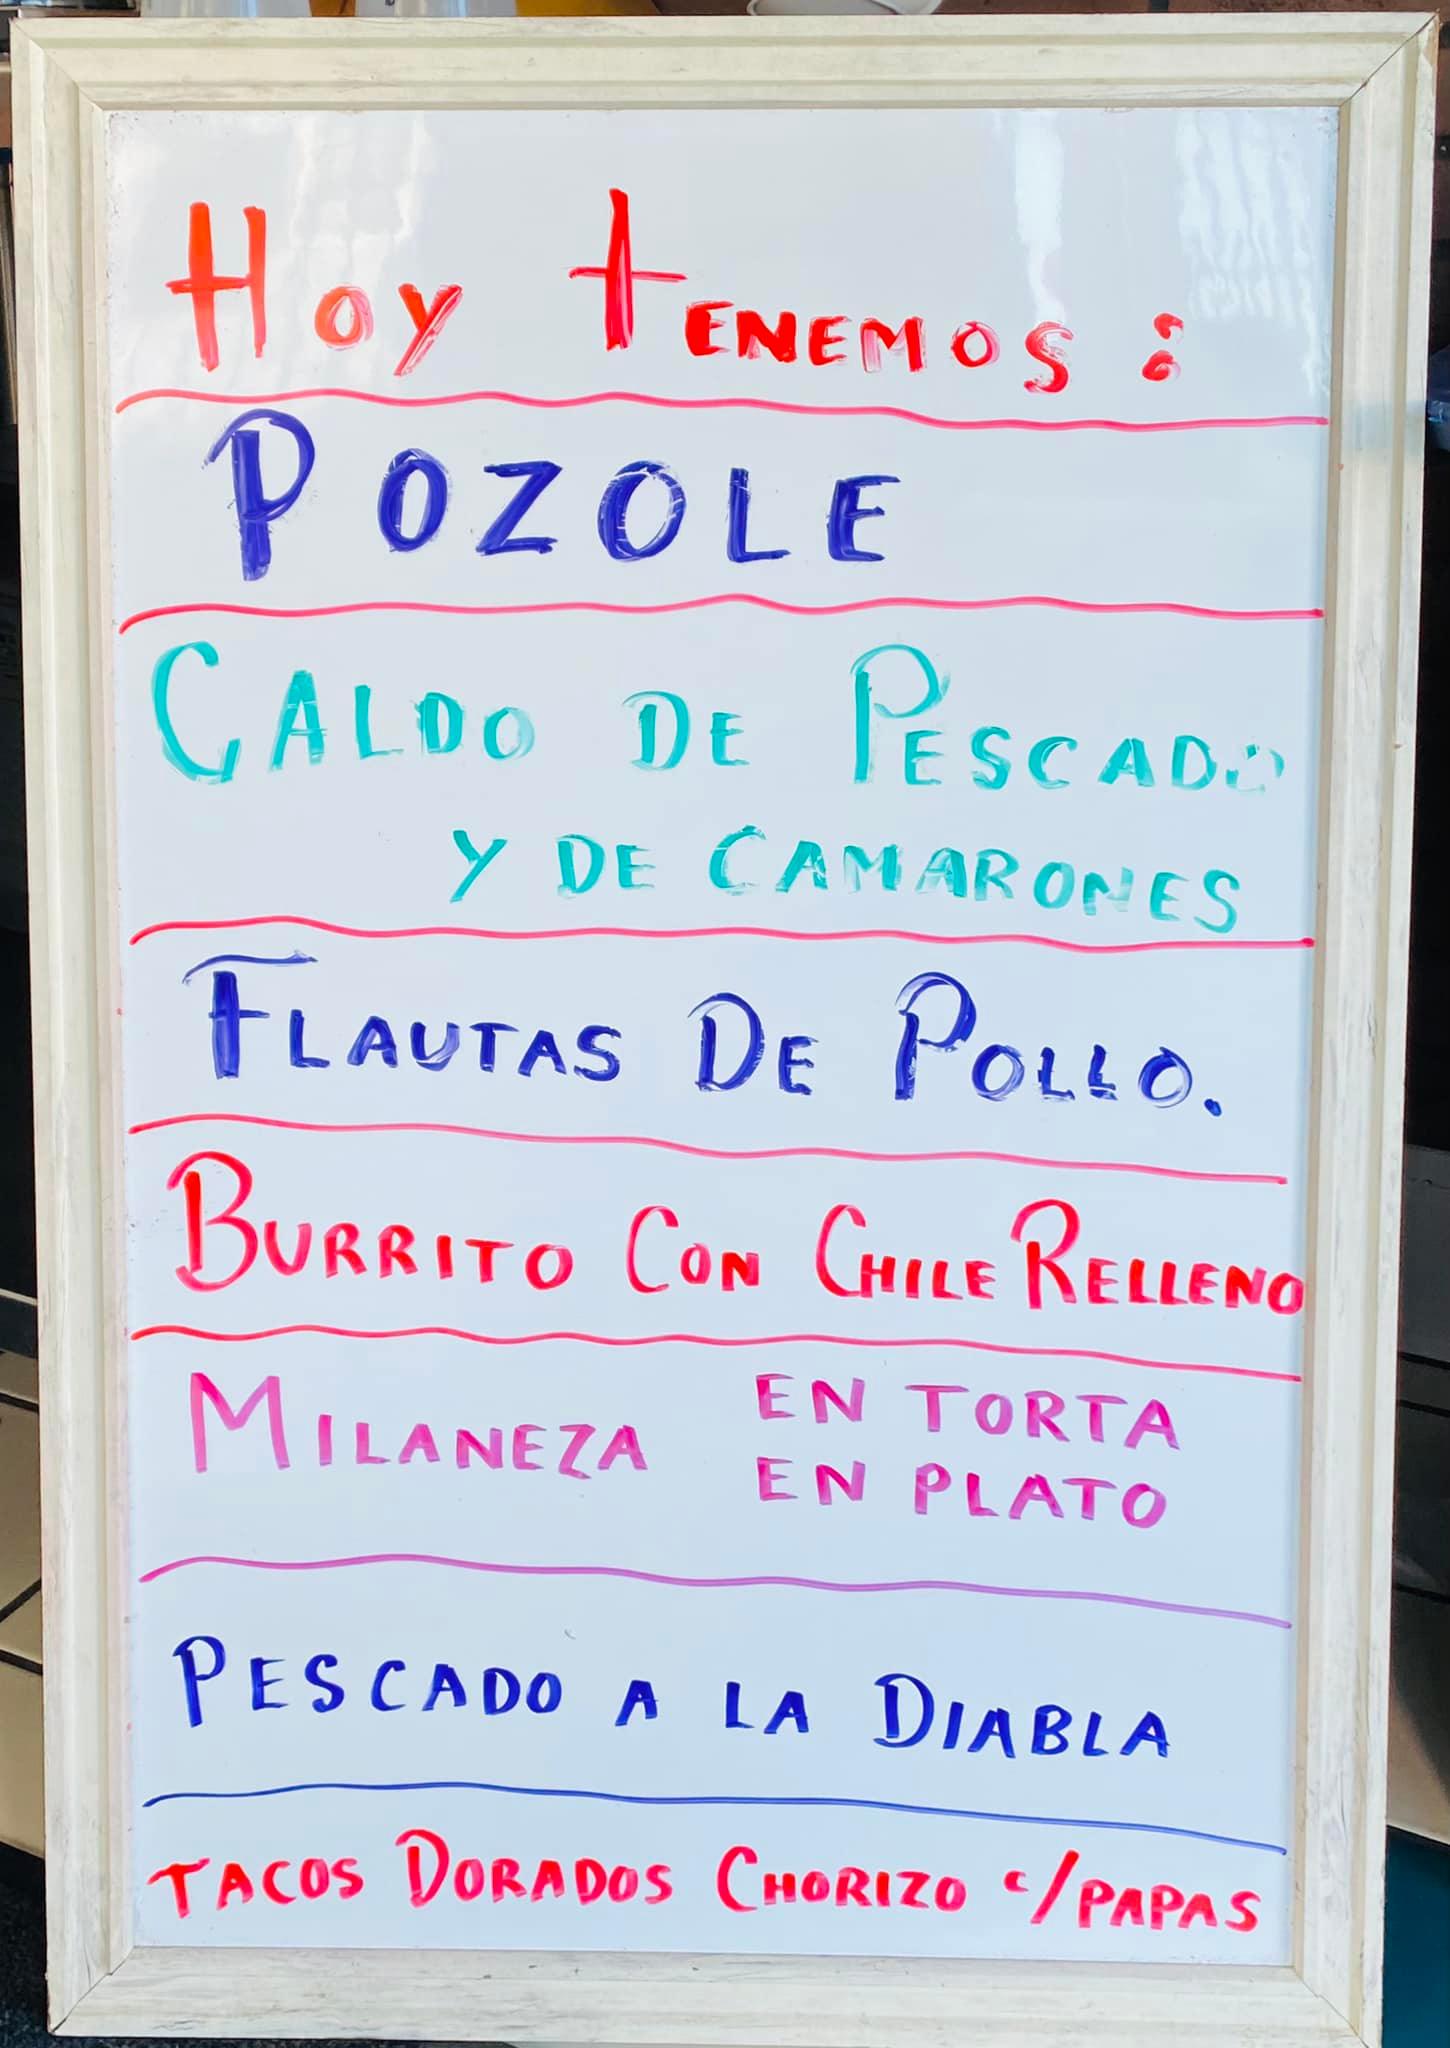 Hoy tenemos:
POZOLE
CALDO DE PESCADO
Y DE CAMARONES
FLAUTAS DE POLLO.
BURRITO CON CHILE RELLENO
MILANEZA EN TORTA
EN PLATO
PESCADO A LA DIABLA
TACOS DORADOS CHORIZO c/PAPAS